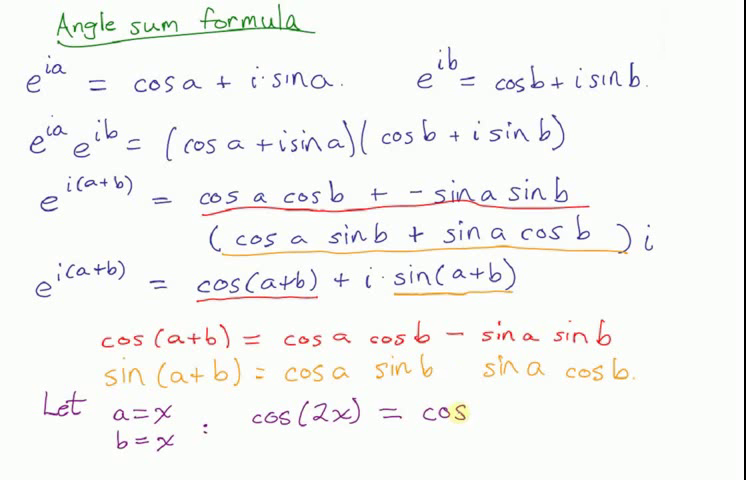 Angle sum formula
e^{ia} = cos a + i · sin a. e^{ib} = cos b + i sin b.
e^{ia} e^{ib} = (cos a + i sin a)(cos b + i sin b)
e^{i(a+b)} = cos a cos b + - sin a sin b
(cos a sin b + sin a cos b) i
e^{i(a+b)} = cos(a+b) + i · sin(a+b)
cos(a+b) = cos a cos b - sin a sin b
sin(a+b) = cos a sin b sin a cos b.
Let a=x : cos(2x) = cos
b=x